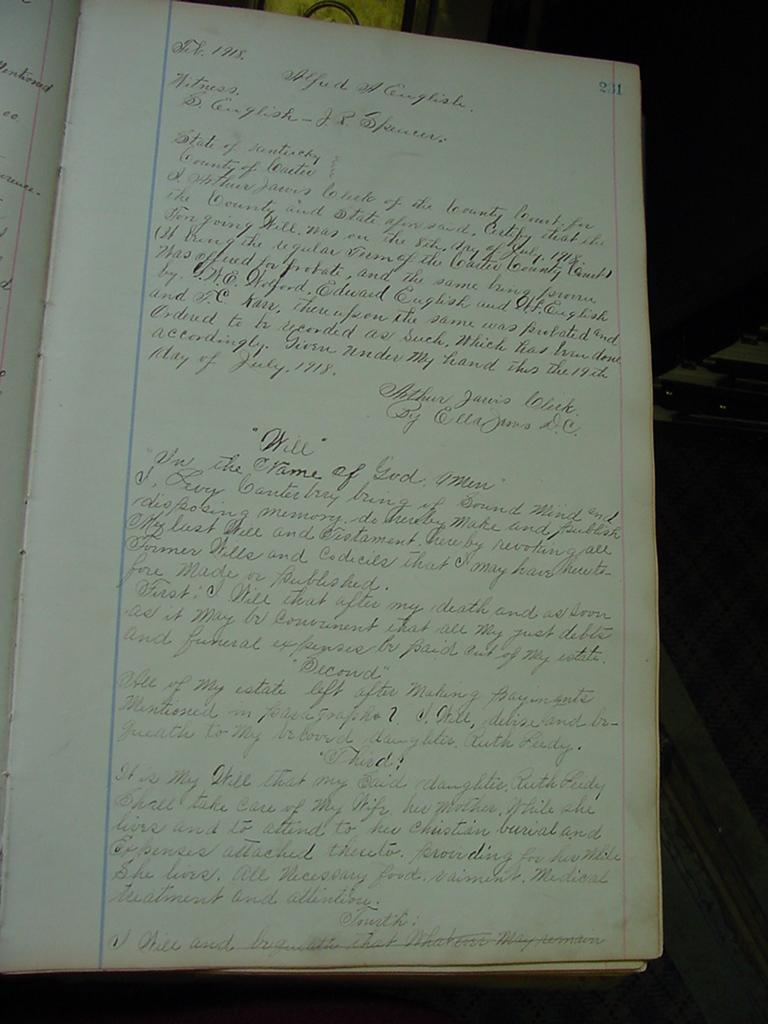 231
Feb. 1918.
Alfred A English.
Witness.
D. English - J R Spencer.
State of Kentucky
County of Carter
I Arthur Jarvis Clerk of the County Court for
the County and State aforesaid, Certify that the
Foregoing Will, was on the 8th, day of July, 1918.
(It being the regular Term of the Carter County Court)
Was offered for probate, and the same being proven
by. W.E. Edward English and W.F. English
and F.C. Karr, thereupon the same was probated and
Ordered to be recorded as Such, Which has been done
accordingly. Given under My hand this the 19th
day of July, 1918.
Arthur Jarvis Clerk.
By Ella Jarvis D.C.
"Will"
"In the Name of God, Amen"
I, Levy Canterbery being of Sound Mind and
disposing memory, do hereby Make and publish
My last Will and Testament, hereby revoking all
Former Wills and Codicils that I may have hereto-
fore Made or published.
First: I Will that after my death and as soon
as it May be convenient that all My just debts
and funeral expenses be paid out of My estate.
"Second"
All of My estate left after Making payments
Mentioned in paragraph ? I Will, devise and be-
queath to My beloved daughter, Ruth Leedy.
"Third:
It is My Will that my Said daughter, Ruth Leedy
Shall take care of My Wife, her Mother, While she
lives and to attend to her Christian burial and
Expenses attached thereto. providing for her While
She lives. All Necessary food, raiment, Medical
treatment and attention.
Fourth:
I Will and bequeath that Whatever May remain